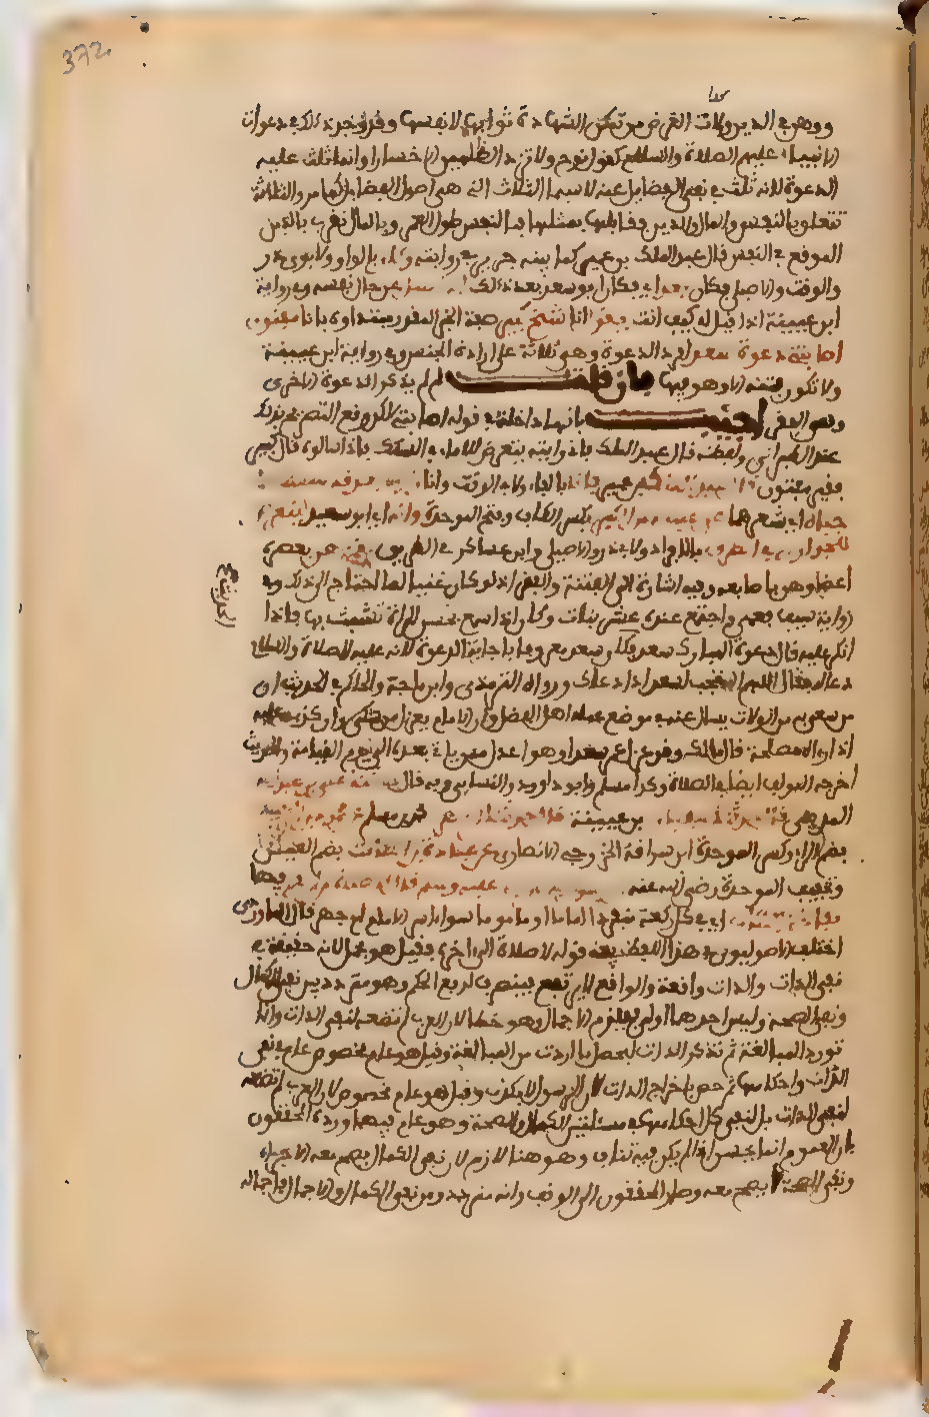 372
ووهن في الدين ولاكن الغرض من تمكن الشهادة ثوابها لا نفسها وقد وجد ذلك في دعوات
الانبياء عليهم الصلاة والسلام كقول نوح ولا تزد الظالمين الا خسارا وانما ثلث عليه
الدعوة لانه ثلث في نفي الفضايل عنه لا سيما الثلاث التي هي اصول الفضايل كما مر والثلاثة
تتعلق بالنفس والمال والدين فقابلها بمثلها فبالنفس طول العمر وبالمال الفقر وبالدين
الوقع في الفتن قال عبد الملك بن عمير كما بينه جرير في روايته وكان بالواو ولابوي ذر
والوقت والاصيلي فكان بعد اي فكان ابو سعدة بعد ذلك اذا سئل عن حال نفسه وفي رواية
ابن عيينة اذا قيل له كيف انت يقول انا شيخ كبير صفة الخبر المقدر مبتداه بانا مفتون
اصابتني دعوة سعد افرد الدعوة وهي ثلاثة على ارادة الجنس وفي رواية ابن عيينة
ولا تكون فتنة الا وهو فيها فان قلت لم لم يذكر الدعوة الاخرى
وهي الفقر اجيب بانها داخلة في قوله اصابتني لاكن وقع التصريح بذلك
عند الطبراني ولفظه قال عبد الملك فانا رايته يتعرض للاماء في السكك فاذا سالوه قال كبير
فقير مفتون قال عبد الملك بن عمير فانا بالفاء ولابي الوقت وانا رايته بعد قد سقط
حاجباه اي شعرهما على عينيه من الكبر بكسر الكاف وفتح الموحدة وانه اي ابو سعدة ليتعرض
للجواري في الطرق بالافراد ولابي ذر والاصيلي وابن عساكر في الطريق يغمزهن يعصر
اعضاءهن باصابعه وفيه اشارة الى الفتنة والفقر اذ لو كان غنيا لما احتاج الى ذلك وفي
رواية سيف فعمي واجتمع عنده عشر بنات وكان اذا سمع بحس المراة تشبث بها فاذا
انكر عليه قال دعوة المبارك سعد وكان سعد معروفا باجابة الدعوة لانه عليه الصلاة والسلام
دعا له فقال اللهم استجب لسعد اذا دعاك ورواه الترمذي وابن ماجة والحاكم في الحديث ان
من سعي به من الولات يسال عنه في موضع عمله اهل الفضل وان الامام يعزل من شكي وان كذب عليه
اذا راه مصلحة قال مالك وقد عزل عمر سعدا وهو اعدل ممن ياتي بعده الى يوم القيامة والحديث
اخرجه المولف ايضا في الصلاة وكذا مسلم وابو داوود والنسائي وبه قال حدثنا علي بن عبد الله
المديني قال حدثنا سفيان بن عيينة قال حدثنا الزهري محمد بن مسلم عن محمود بن الربيع
بفتح الراء وكسر الموحدة ابن سراقة الخزرجي الانصاري عن عبادة بن الصامت بضم العين
وتخفيف الموحدة رضي الله عنه ان رسول الله صلى الله عليه وسلم قال لا صلاة لمن لم يقرا فيها
بفاتحة الكتاب اي في كل ركعة منفردا او اماما او ماموما سواء اسر الامام او جهر قال المازري
اختلف الاصوليون في هذا اللفظ يعني قوله لا صلاة الى اخره فقيل هو مجمل لانه حقيقة في
نفي الذات والذات واقعة والواقع لا يرتفع فينصرف لرفع الحكم وهو متردد بين نفي الكمال
ونفي الصحة وليس احدهما اولى فيلزم الاجمال وهو خطا لان العرب لم تضعه لنفي الذات وانما
تورده للمبالغة ثم تذكر الذات ليحصل ما ارادت من المبالغة وقيل هو عام مخصوص عام في نفي
الذات واحكامها ثم خص باخراج الذات لان الرسول لا يكذب وقيل هو عام غير مخصوص لان العرب لم تضعه
لنفي الذات بل لنفي كل احكامها في مسئلتنا الكمال والصحة وهو عام فيهما ورده المحققون
بان العموم انما يحسن اذا لم يكن فيه تناف وهو هنا لازم لان نفي الكمال يصح معه الاجزاء
ونفي الصحة لا يصح معه وصار المحققون الى الوقف وانه متردد بين نفي الكمال والاجزاء فاجماله